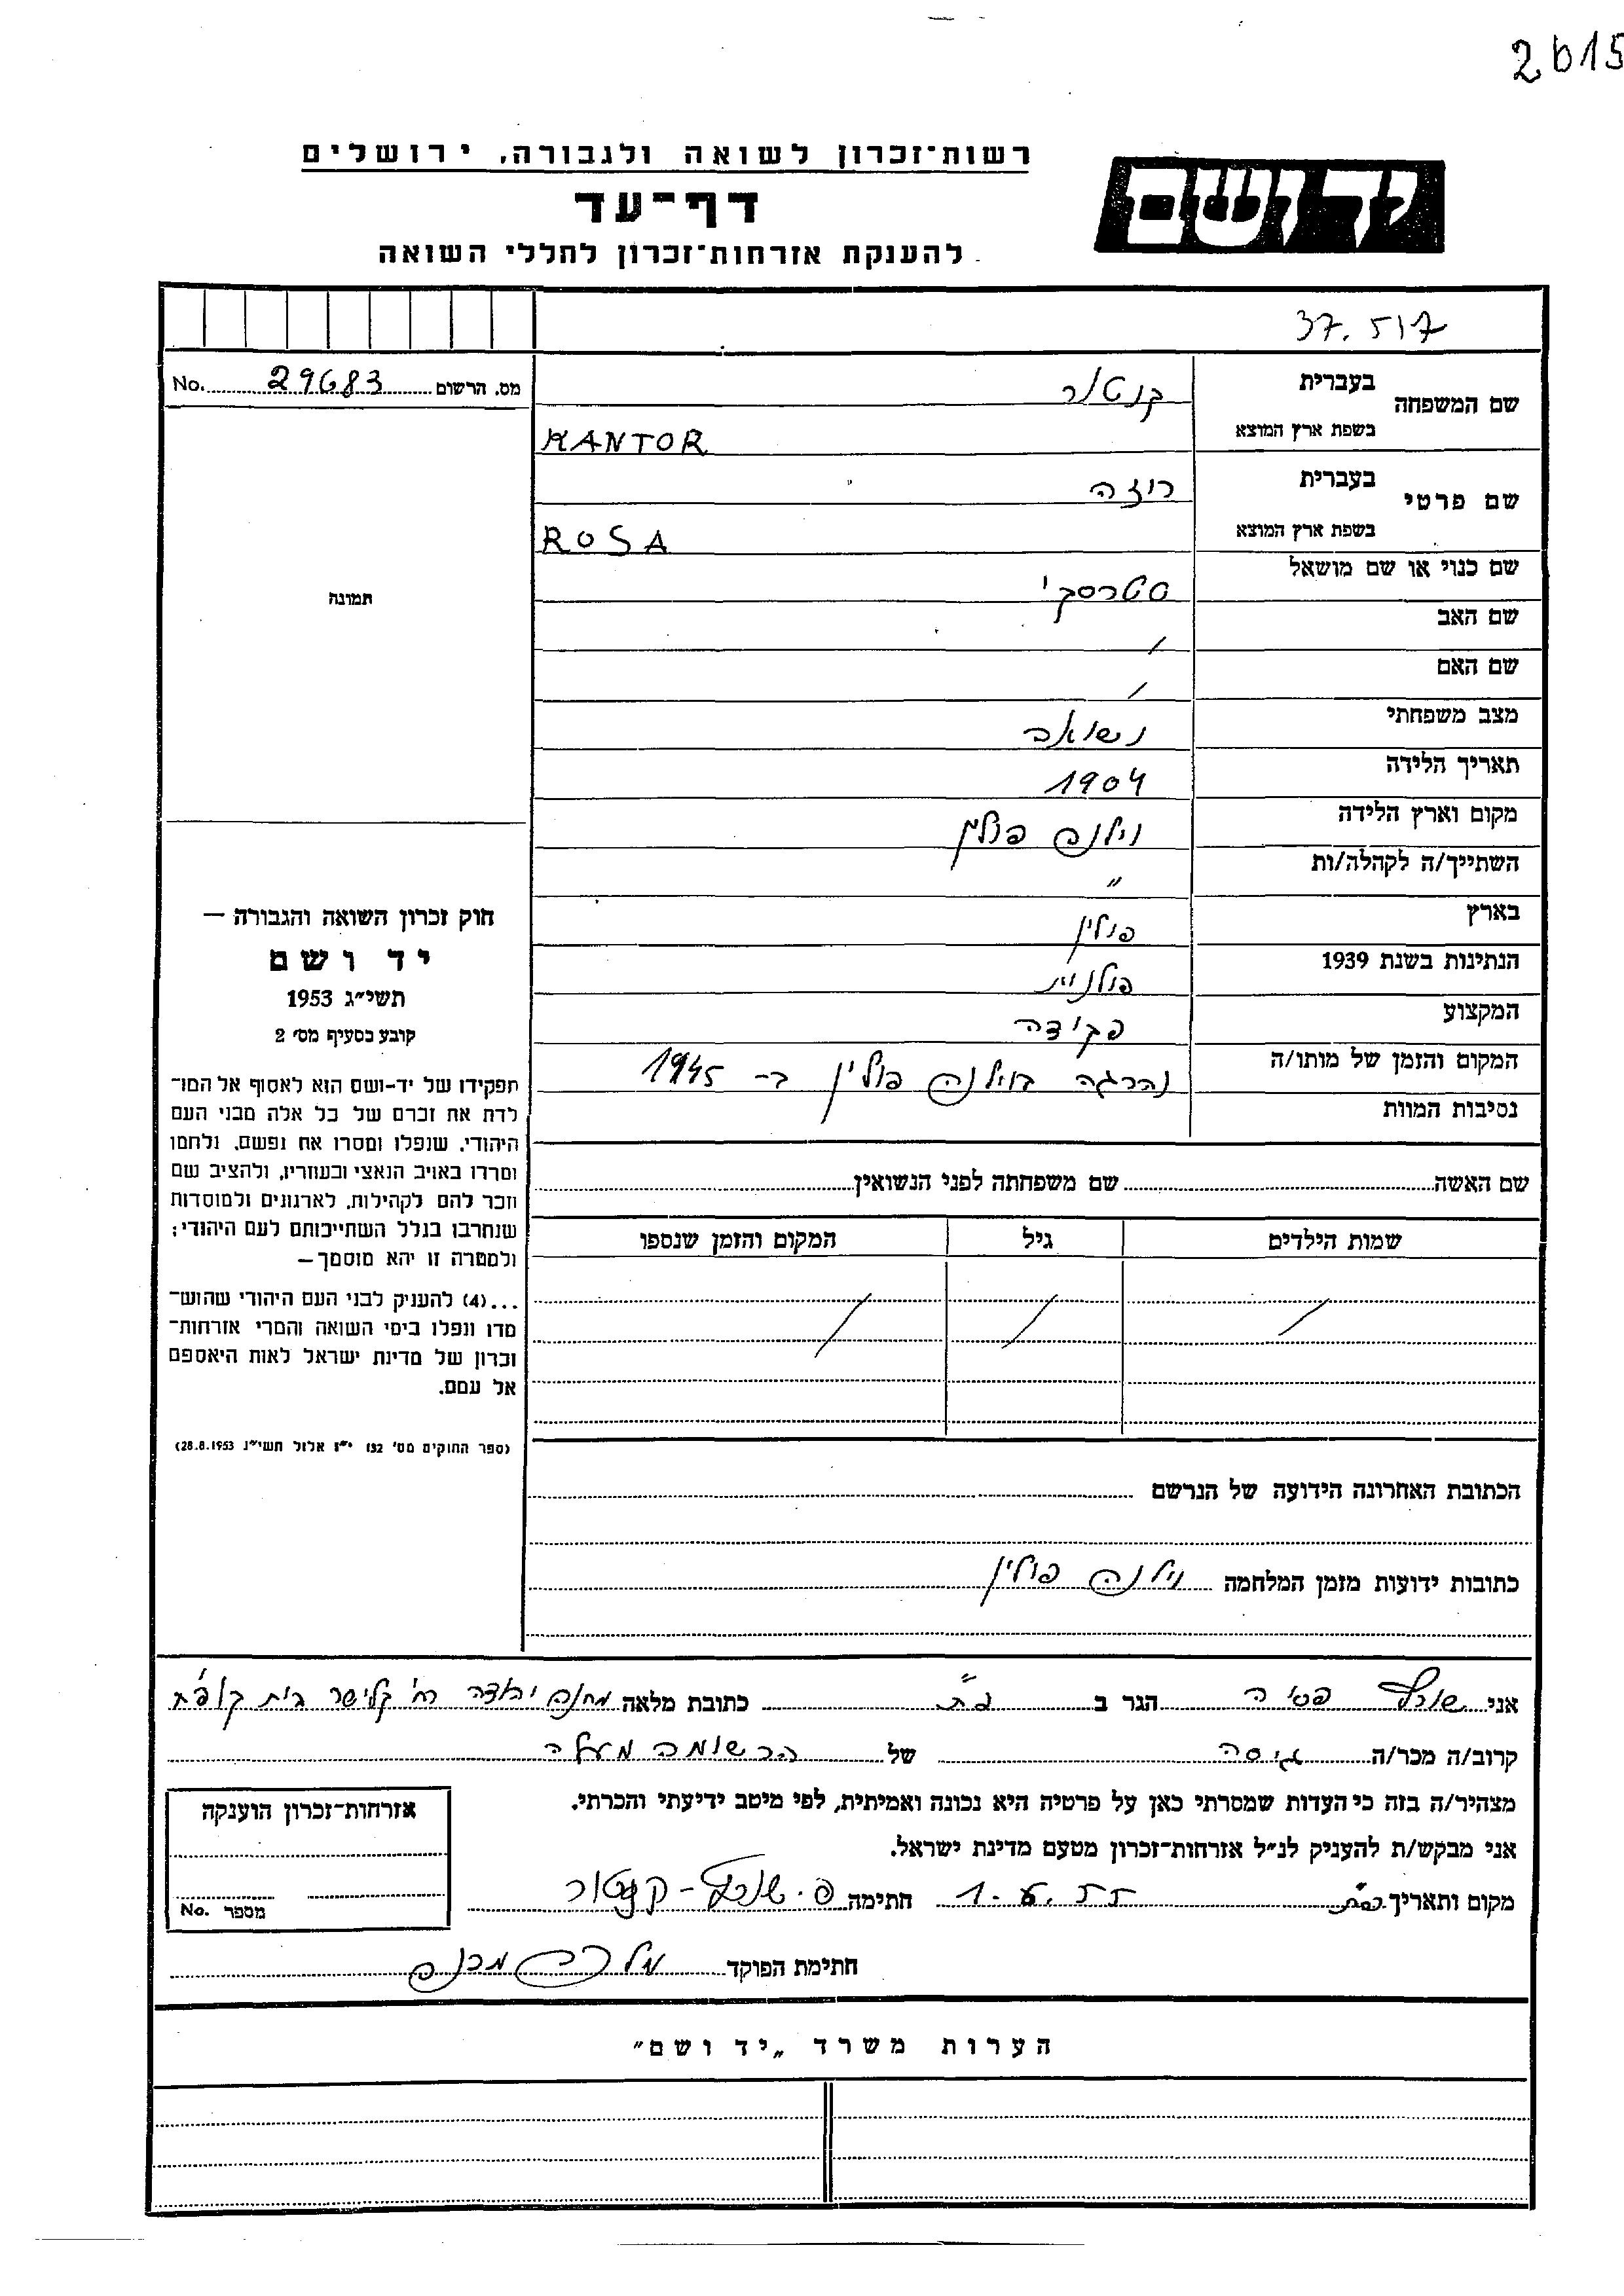 2615
רשות־זכרון לשואה ולגבורה, ירושלים
יד ושם
דף־עד
להענקת אזרחות־זכרון לחללי השואה
37. 517
שם המשפחה בעברית קנטור
בשפת ארץ המוצא KANTOR
שם פרטי בעברית רוזה
בשפת ארץ המוצא ROSA
שם כנוי או שם מושאל סטרסקי
שם האב /
שם האם /
מצב משפחתי נשואה
תאריך הלידה 1904
מקום וארץ הלידה וילנה פולין
השתייך/ה לקהלה/ות "
בארץ פולין
הנתינות בשנת 1939 פולנית
המקצוע פקידה
המקום והזמן של מותו/ה נהרגה בוילנה פולין ב- 1945
נסיבות המוות
שם האשה שם משפחתה לפני הנשואין
שמות הילדים גיל המקום והזמן שנספו
/ / /
הכתובת האחרונה הידועה של הנרשם
כתובות ידועות מזמן המלחמה וילנה פולין
מס. הרשום 29683 No.
תמונה
חוק זכרון השואה והגבורה —
יד ושם
תשי״ג 1953
קובע בסעיף מס׳ 2
תפקידו של יד-ושם הוא לאסוף אל המו־
לדת את זכרם של כל אלה מבני העם
היהודי, שנפלו ומסרו את נפשם, נלחמו
ומרדו באויב הנאצי ובעוזריו, ולהציב שם
וזכר להם לקהילות, לארגונים ולמוסדות
שנחרבו בגלל השתייכותם לעם היהודי;
ולמטרה זו יהא מוסמך —
...(4) להעניק לבני העם היהודי שהוש־
מדו ונפלו בימי השואה והמרי אזרחות־
זכרון של מדינת ישראל לאות היאספם
אל עמם.
(ספר החוקים מס׳ 132 י״ז אלול תשי״ג 28.8.1953)
אני פסיה הגר ב פ״ת כתובת מלאה מחנה יהודה רח׳ קלישר בית קופ״ח
קרוב/ה מכר/ה גיסה של הרשומה מעלה
מצהיר/ה בזה כי העדות שמסרתי כאן על פרטיה היא נכונה ואמיתית, לפי מיטב ידיעתי והכרתי.
אני מבקש/ת להעניק לנ״ל אזרחות־זכרון מטעם מדינת ישראל.
מקום ותאריך פ״ת חתימה קנטור
חתימת הפוקד
אזרחות־זכרון הוענקה
מספר No.
הערות משרד „יד ושם״